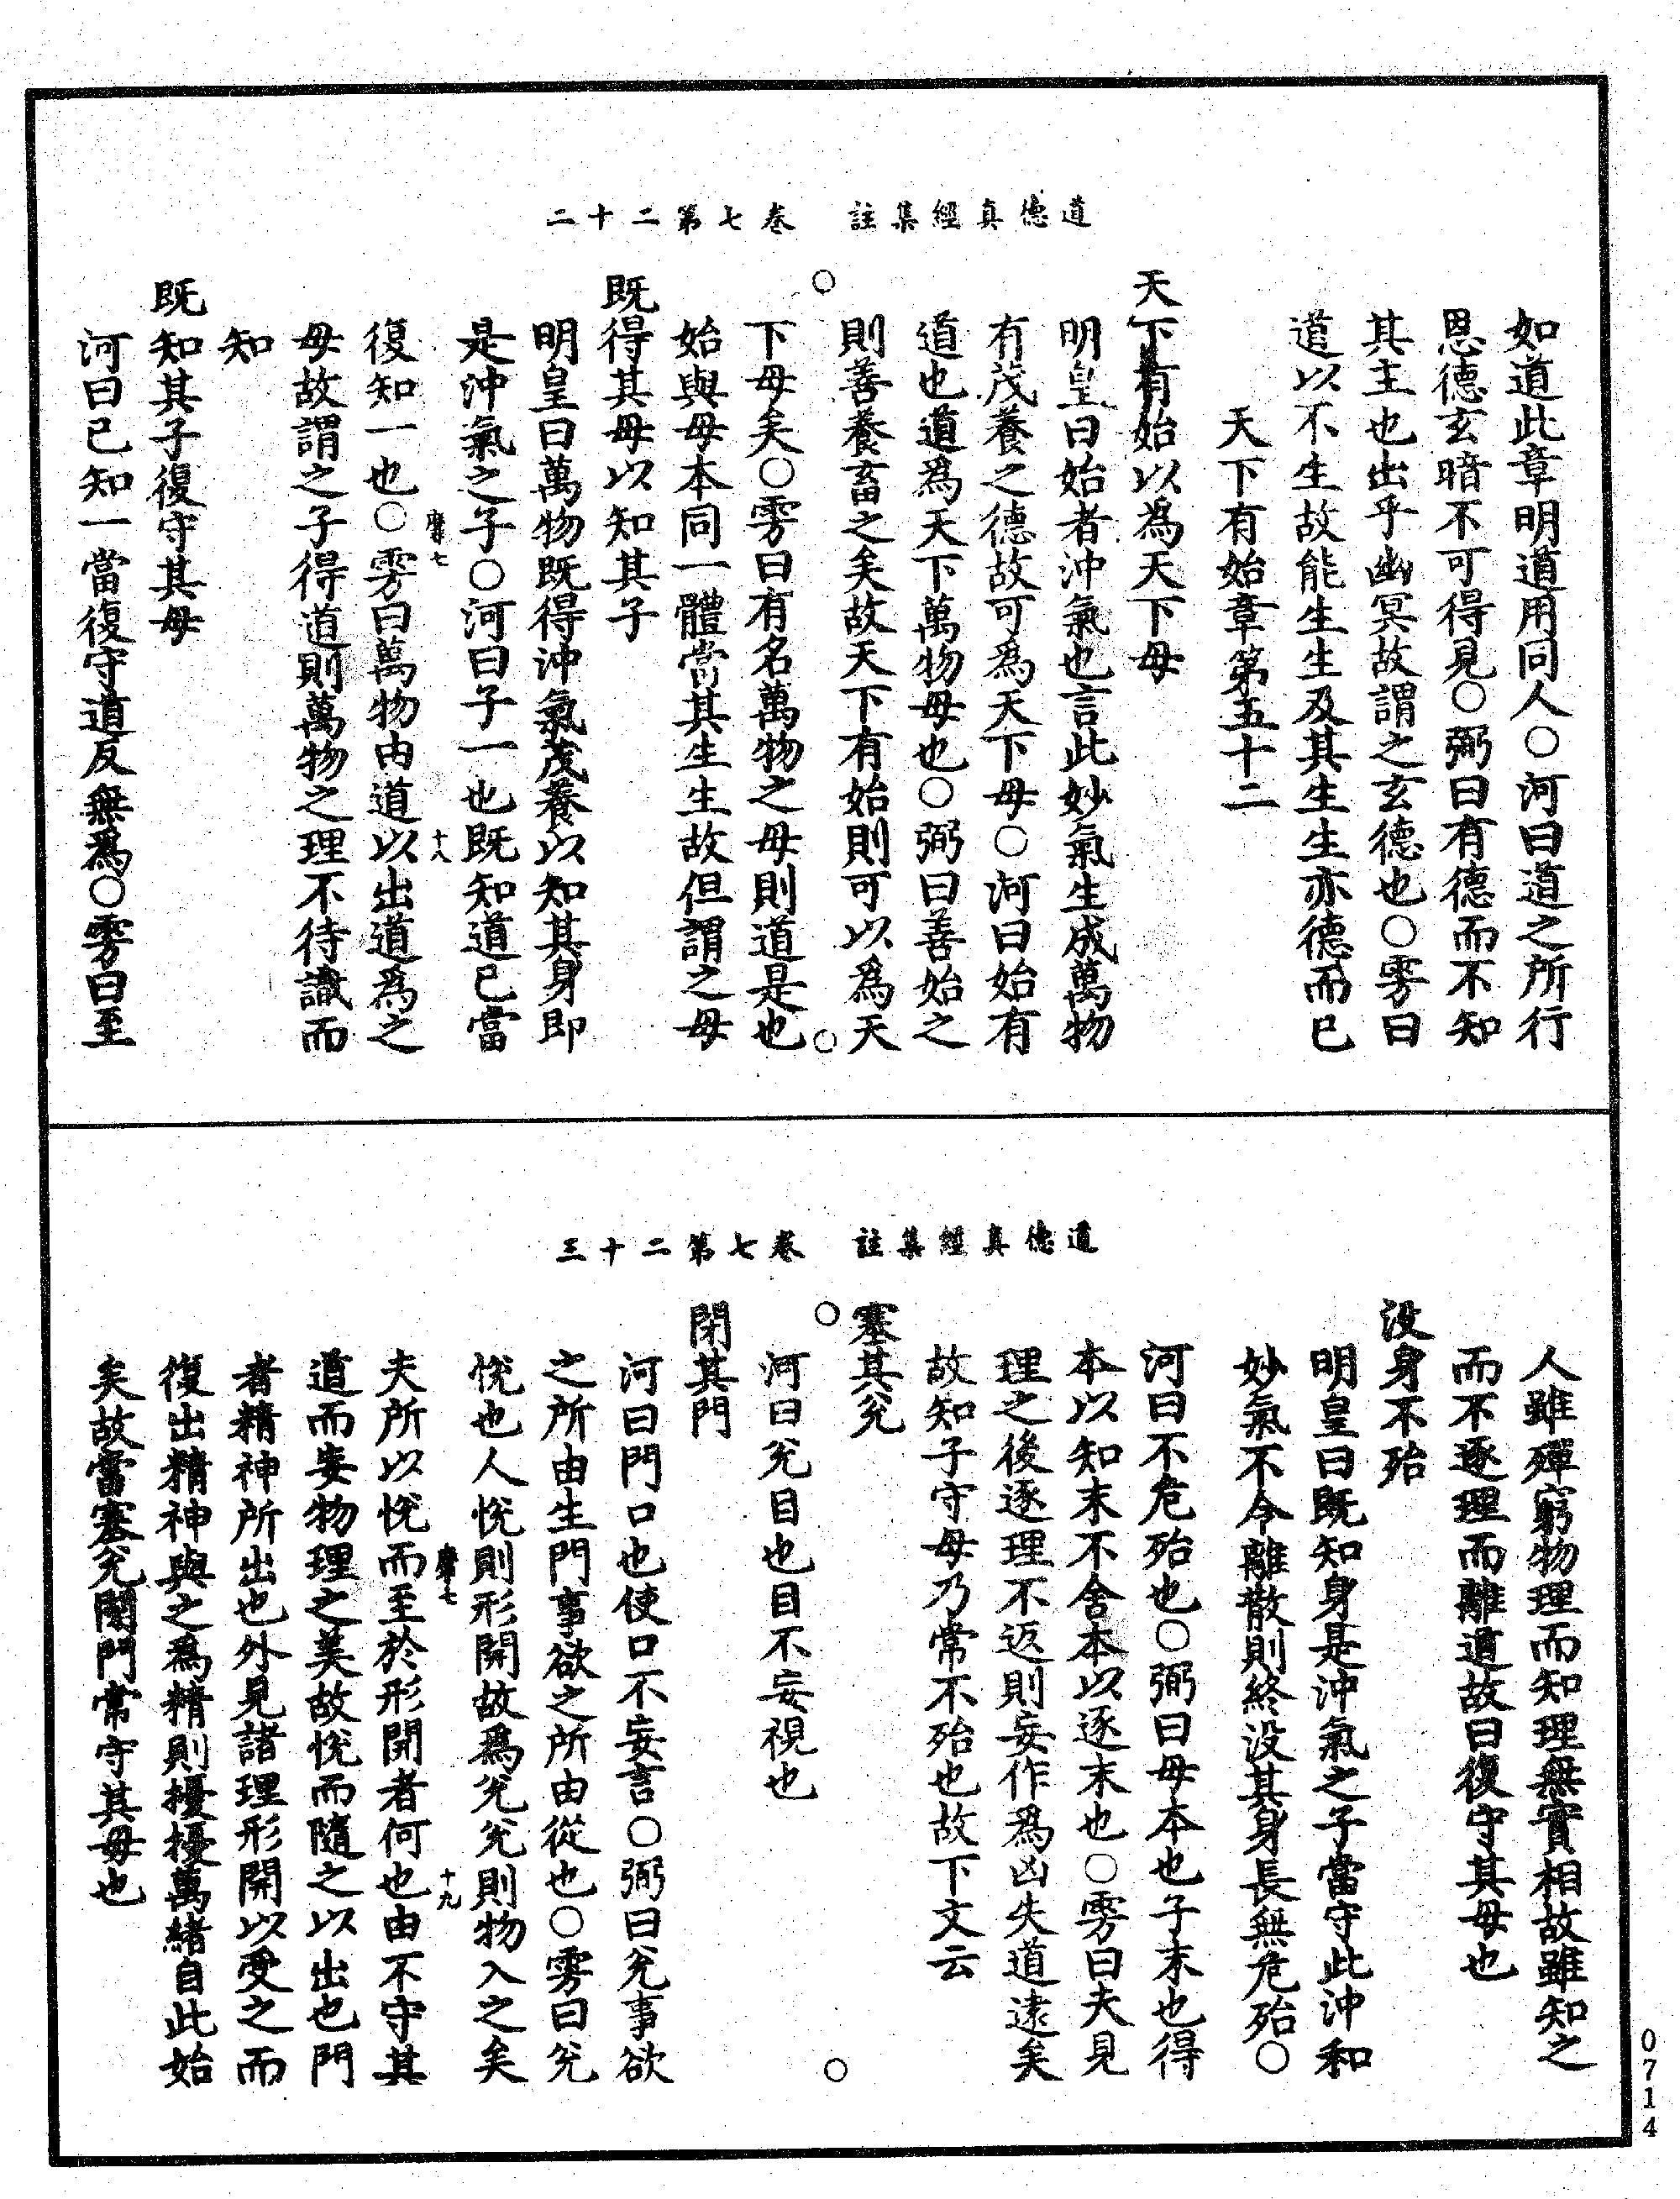 道德真經集註　卷七第二十二
如道此章明道用同人○河曰道之所行
恩德玄暗不可得見○弼曰有德而不知
其主也出乎幽冥故謂之玄德也○雱曰
道以不生故能生生及其生生亦德而已
天下有始章第五十二
天下有始以為天下母
明皇曰始者沖氣也言此妙氣生成萬物
有茂養之德故可為天下母○河曰始有
道也道為天下萬物母也○弼曰善始之
則善養畜之矣故天下有始則可以為天
下母矣○雱曰有名萬物之母則道是也
始與母本同一體當其生生故但謂之母
既得其母以知其子
明皇曰萬物既得沖氣茂養以知其身即
是沖氣之子○河曰子一也既知道已當
復知一也○雱曰萬物由道以出道為之
母故謂之子得道則萬物之理不待識而
知
既知其子復守其母
河曰已知一當復守道反無為○雱曰至
七
十八
道德真經集註　卷七第二十三
人雖殫窮物理而知理無實相故雖知之
而不逐理而離道故曰復守其母也
没身不殆
明皇曰既知身是沖氣之子當守此沖和
妙氣不令離散則終没其身長無危殆○
河曰不危殆也○弼曰母本也子末也得
本以知末不舍本以逐末也○雱曰夫見
理之後逐理不返則妄作為凶失道逺矣
故知子守母乃常不殆也故下文云
塞其兊
河曰兊目也目不妄視也
閉其門
河曰門口也使口不妄言○弼曰兊事欲
之所由生門事欲之所由從也○雱曰兊
悅也人悅則形開故為兊兊則物入之矣
夫所以悅而至於形開者何也由不守其
道而妄物理之美故悅而隨之以出也門
者精神所出也外見諸理形開以受之而
復出精神與之為精則擾擾萬緒自此始
矣故當塞兊閉門常守其母也
七
十九
0714